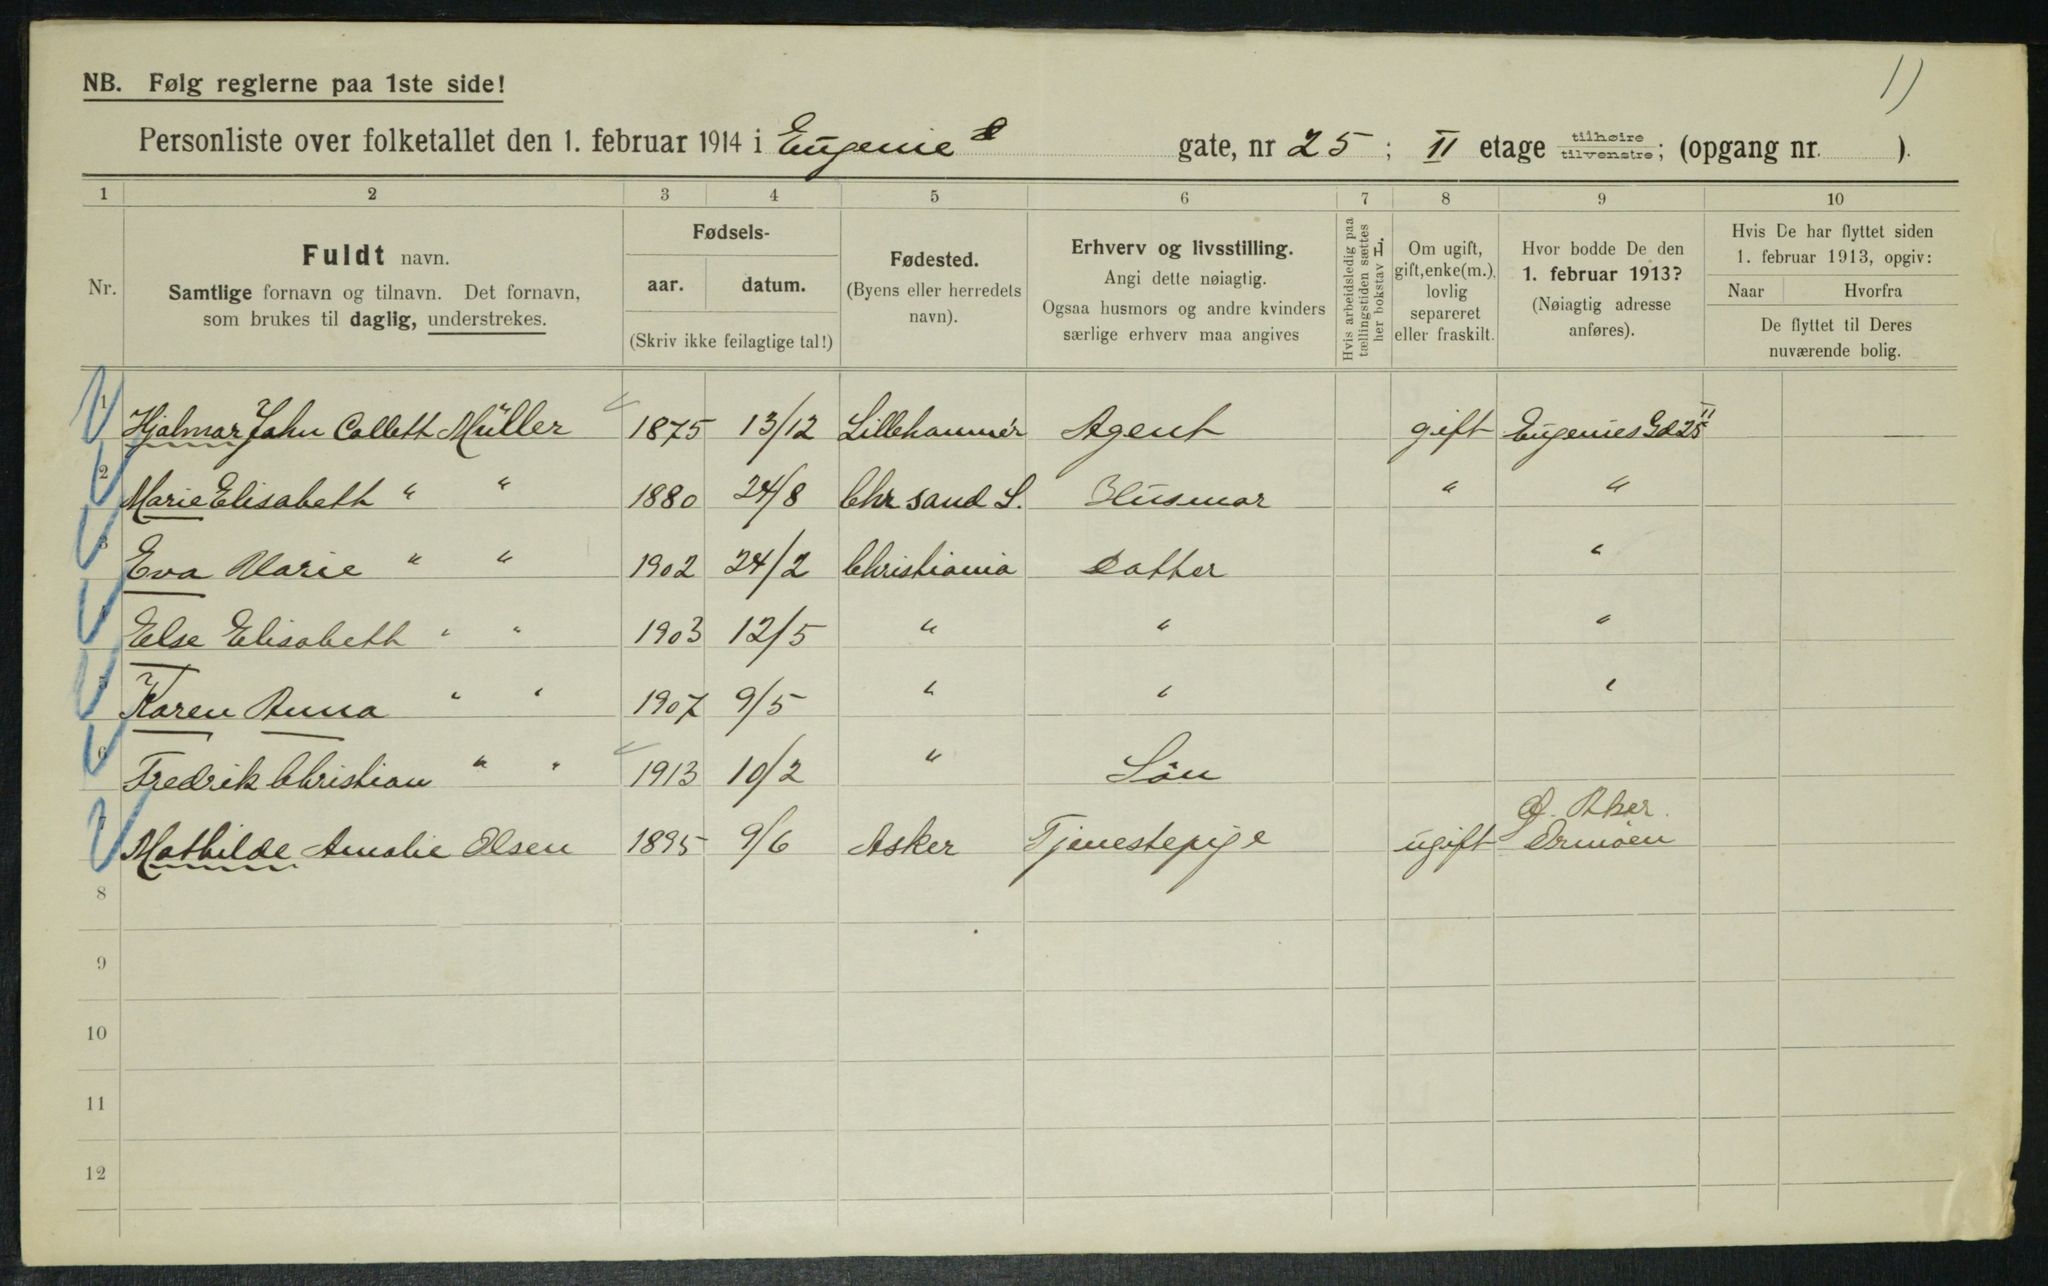 11
NB. Følg reglerne paa 1ste side!
Personliste over folketallet den 1. februar 1914 i Eugenies gate, nr 25; II etage tilhøire tilvenstre; (opgang nr. ).
1 2 3 4 5 6 7 8 9 10
Nr.
Fuldt navn.
Samtlige fornavn og tilnavn. Det fornavn,
som brukes til daglig, understrekes.
Fødsels-
aar. datum.
(Skriv ikke feilagtige tal!)
Fødested.
(Byens eller herredets
navn).
Erhverv og livsstilling.
Angi dette nøiagtig.
Ogsaa husmors og andre kvinders
særlige erhverv maa angives
Hvis arbeidsledig paa
tællingstiden sættes
her bokstav L.
Om ugift,
gift, enke(m.),
lovlig
separeret
eller fraskilt.
Hvor bodde De den
1. februar 1913?
(Nøiagtig adresse
anføres).
Hvis De har flyttet siden
1. februar 1913, opgiv:
Naar Hvorfra
De flyttet til Deres
nuværende bolig.
1 Hjalmar John Collett Müller 1875 13/12 Lillehammer Agent gift Eugenies Gd 25 II
2 Marie Elisabeth " " 1880 24/8 Chrsand S. Husmor " "
3 Eva Marie " " 1902 24/2 Christiania Datter "
4 Else Elisabeth " " 1903 12/5 " " "
5 Karen Anna " " 1907 9/5 " " "
6 Fredrik Christian " " 1913 10/2 " Søn
7 Mathilde Amalie Olsen 1895 9/6 Asker Tjenestepige ugift Ø. Aker. Ormøen
8
9
10
11
12